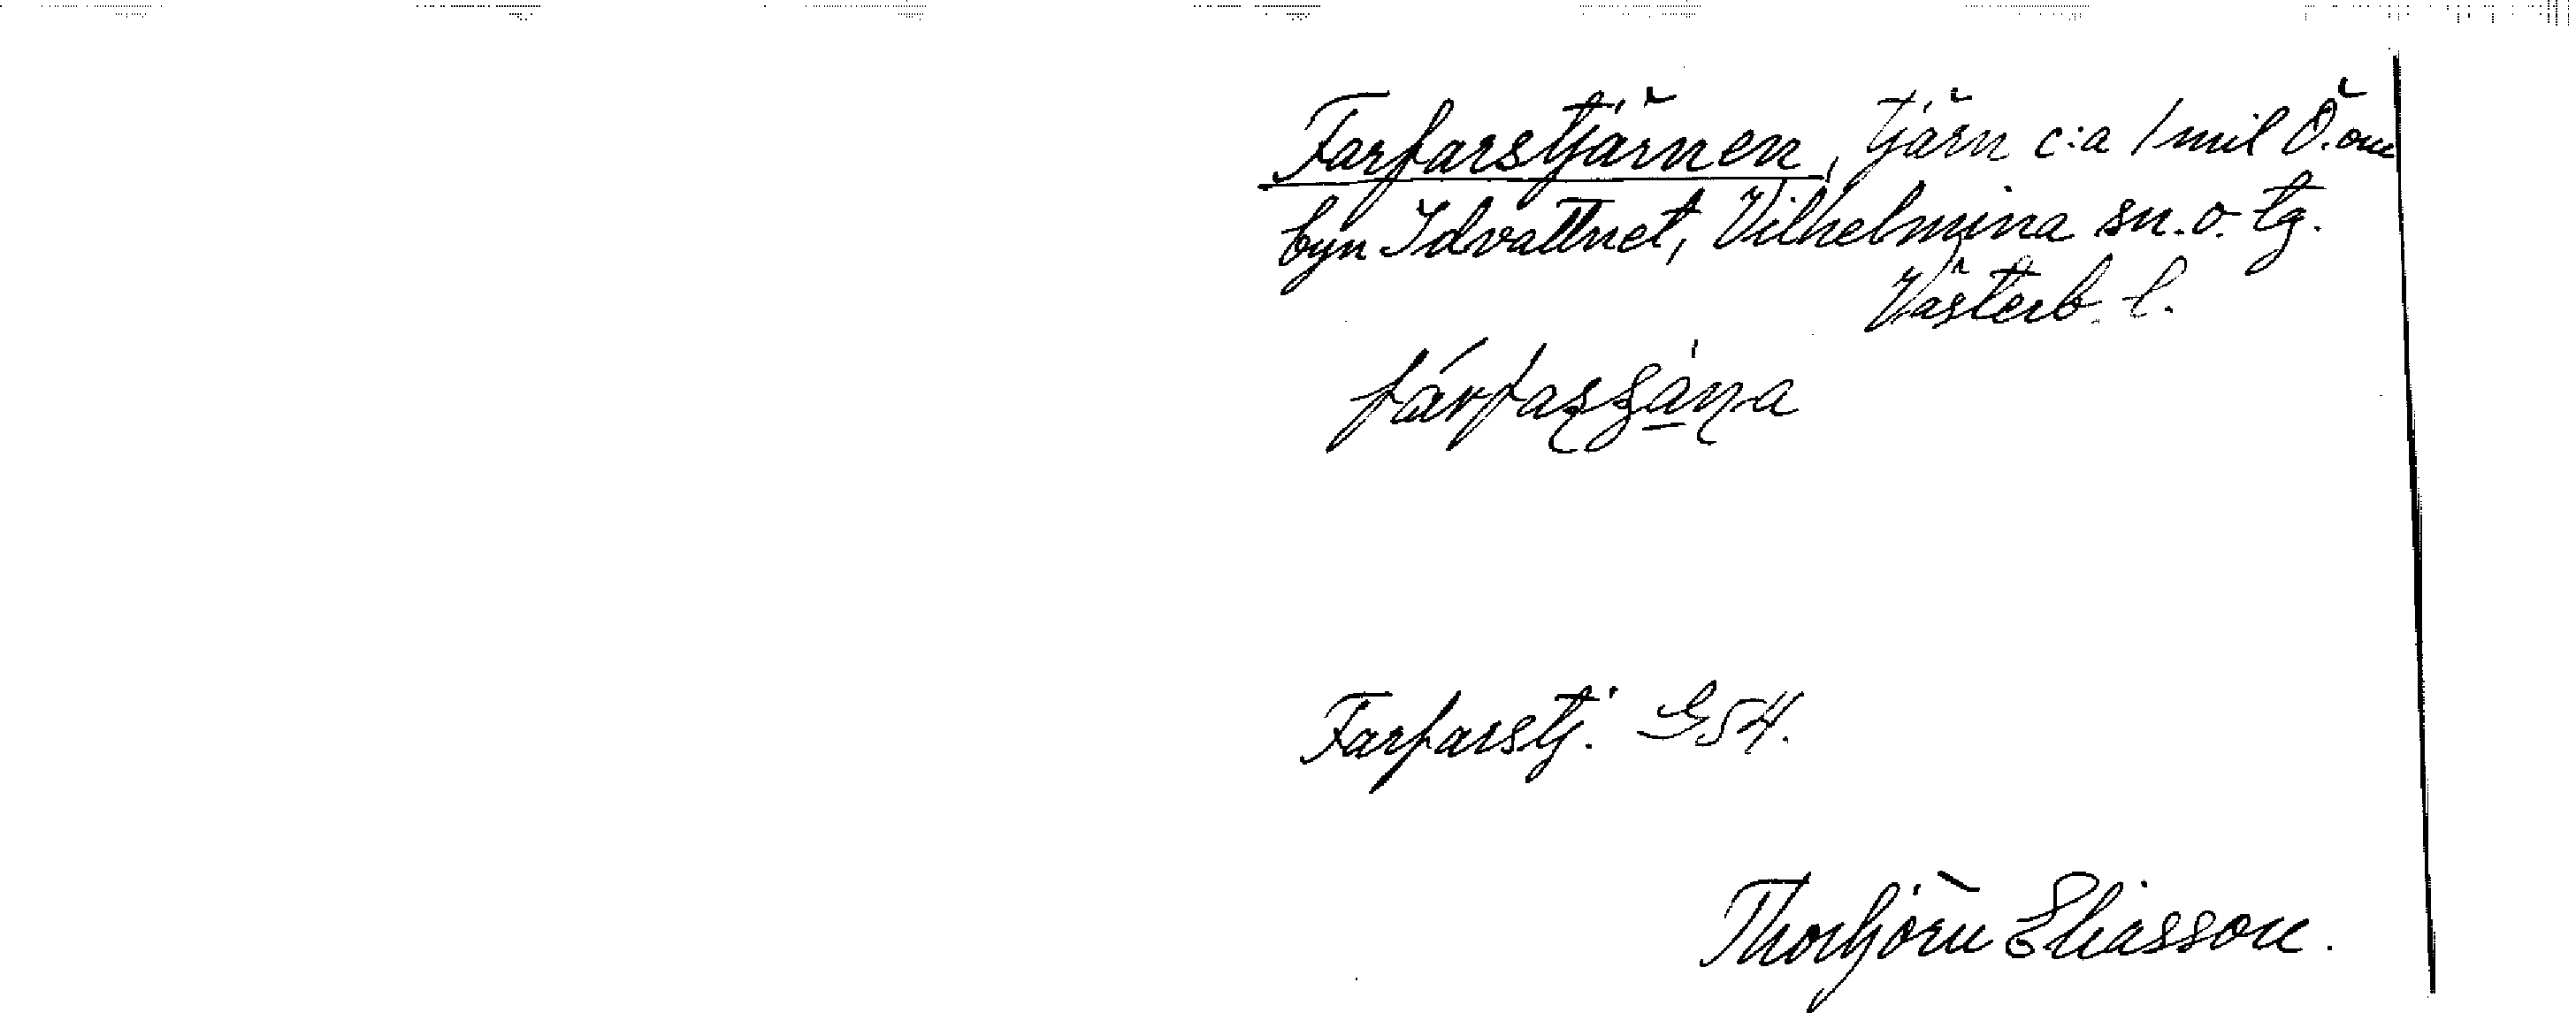 Farfarstjärnen, tjärn c:a 1 mil Ö. om
byn Idvattnet, Vilhelmina sn. o. tg.
Västerb. l.
Farfarstj. G54.
Thorbjörn Eliasson.